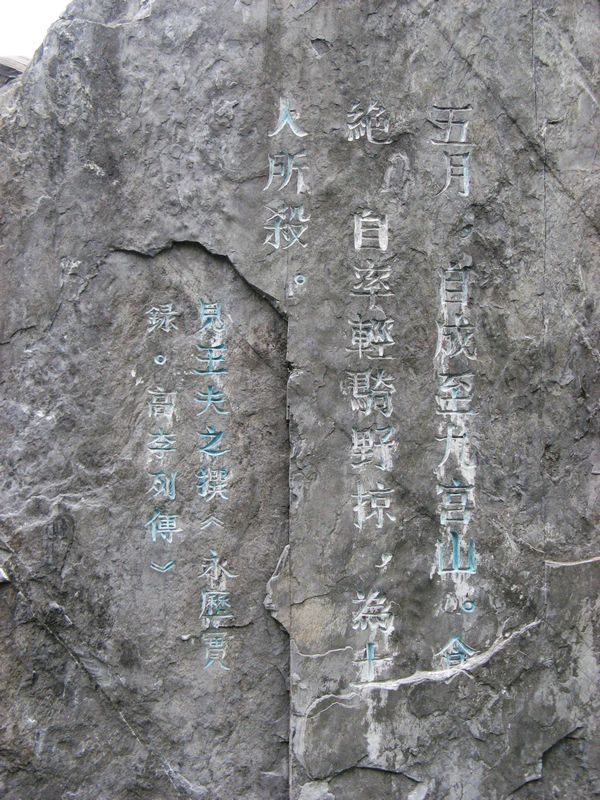 五月，自成至九宮山。食
絶，自率輕騎野掠，為土
人所殺。
見王夫之撰《永歷實
録。高李列傳》